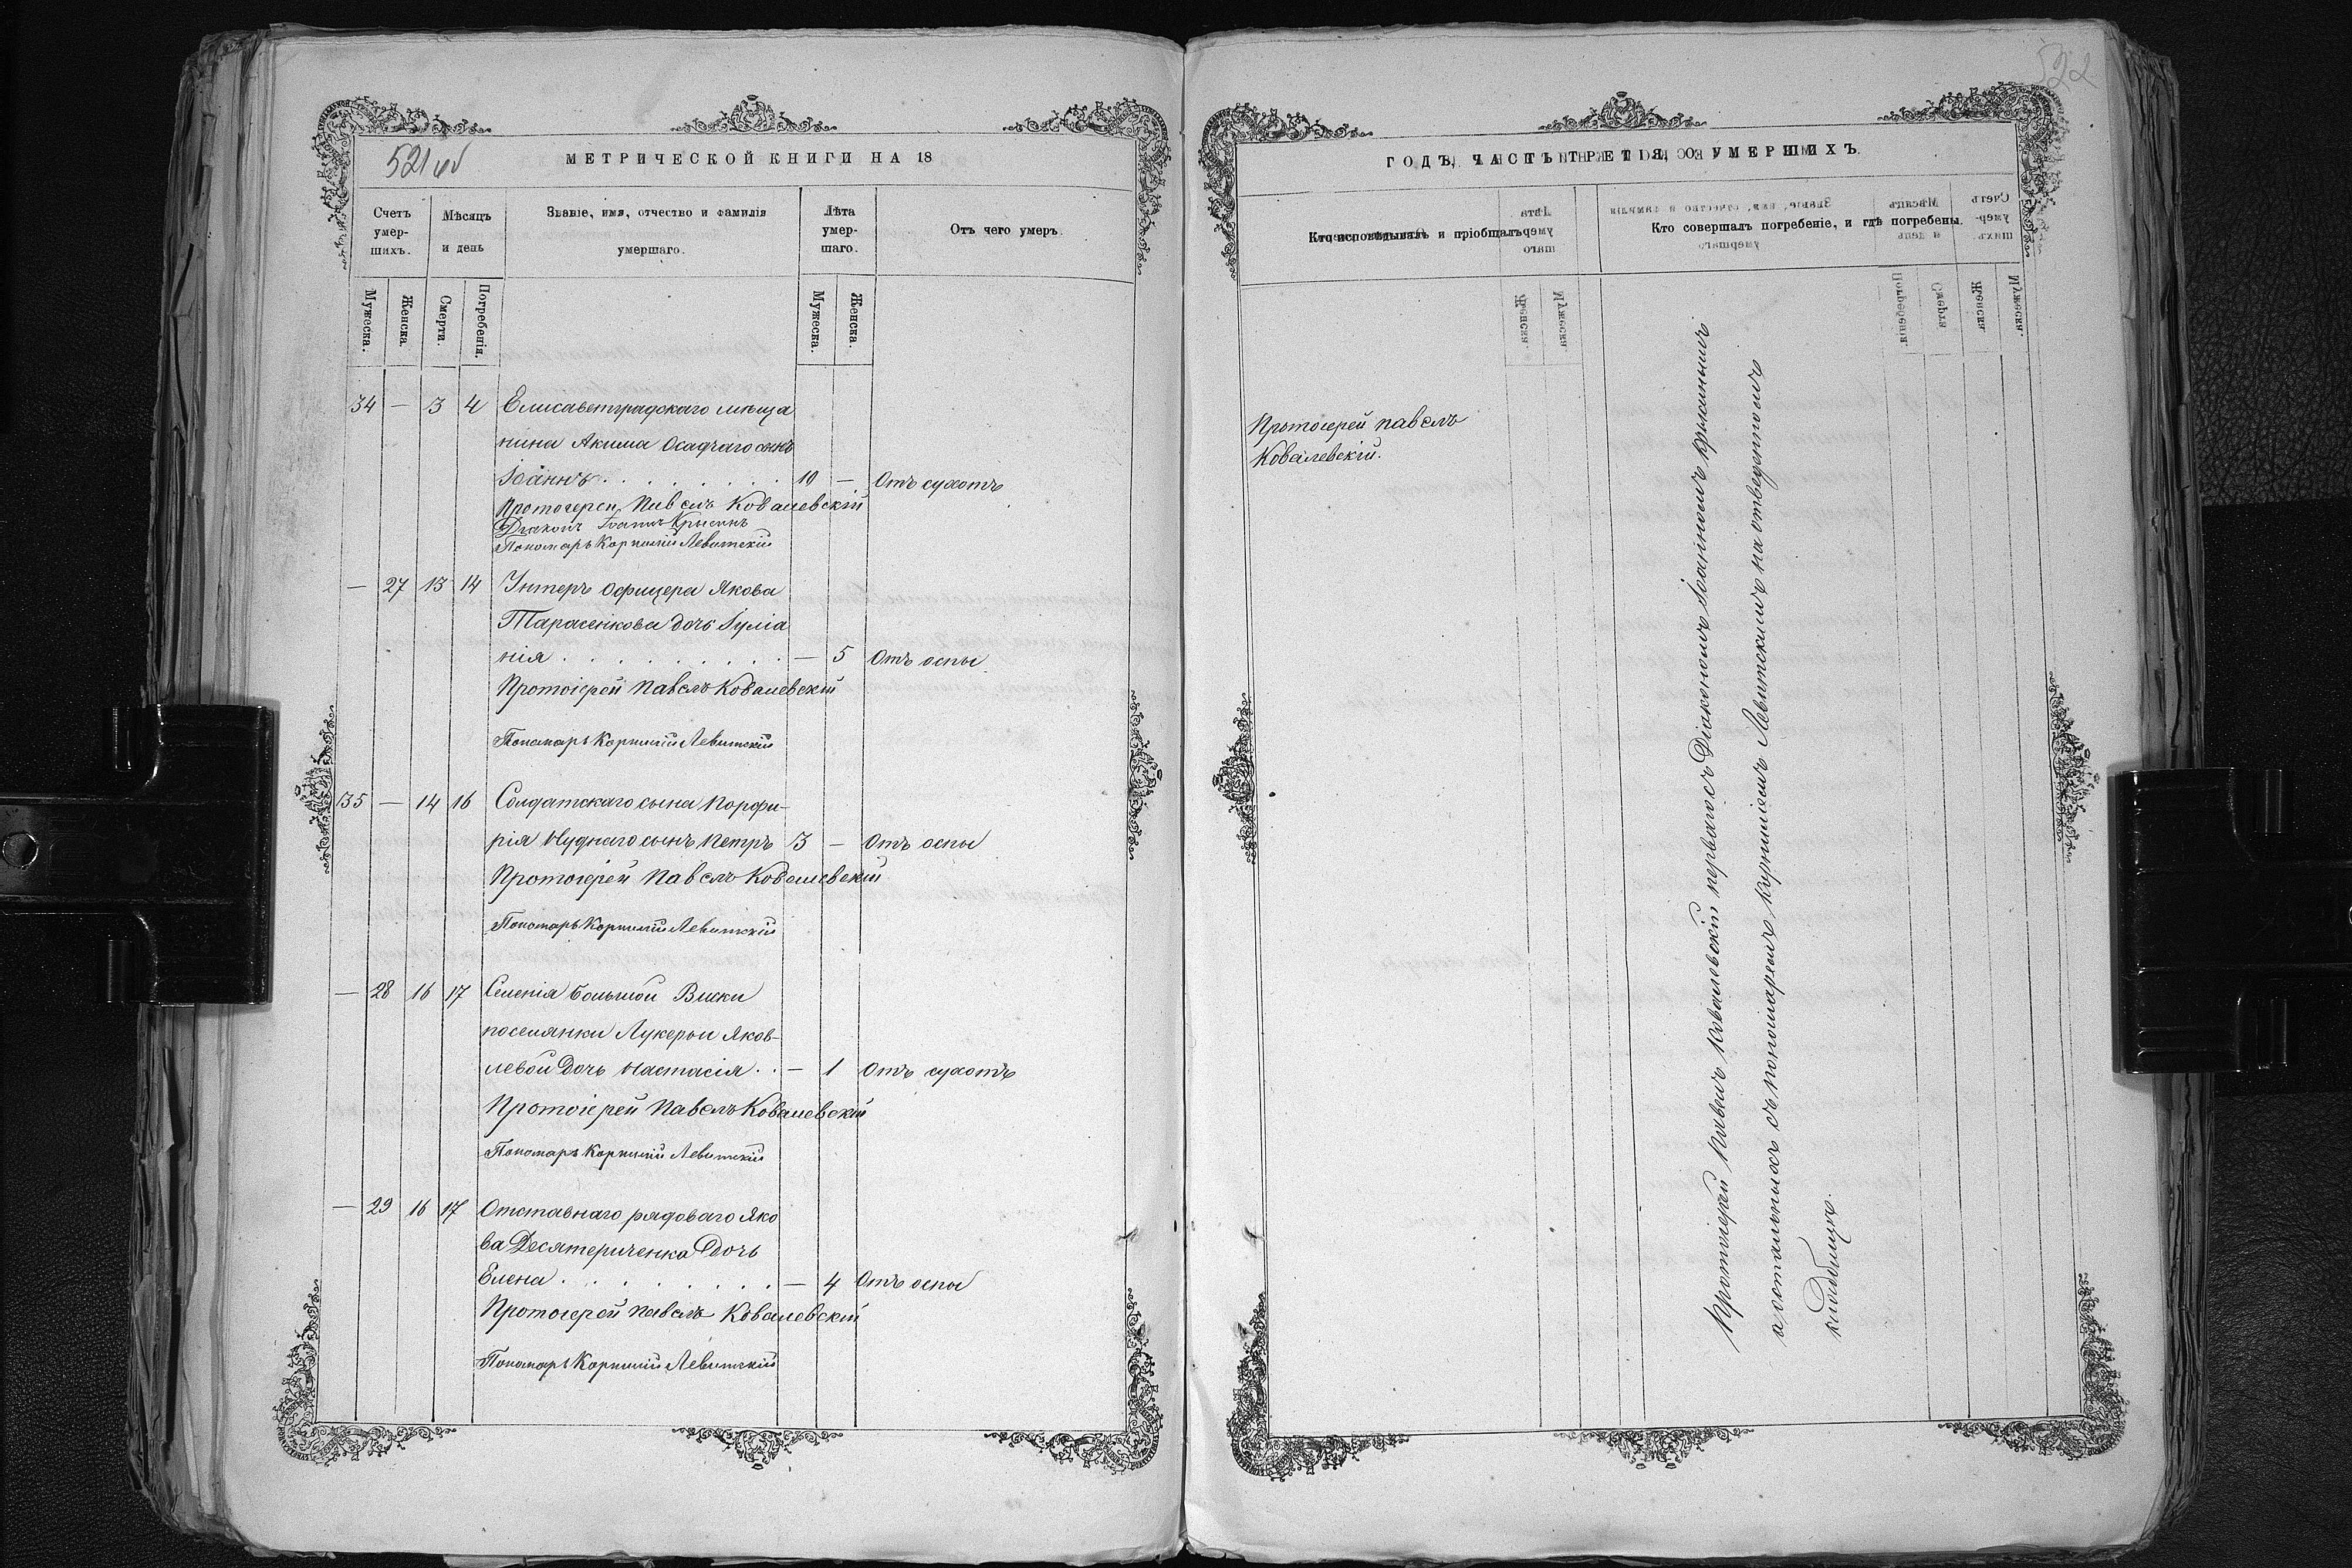 522
521 об
МЕТРИЧЕСКОЙ КНИГИ НА 18
ГОДЪ, ЧАСТЬ ТРЕТІЯ, О УМЕРШИХЪ.
Счетъ умер-шихъ.
Мѣсяцъ и день
Званіе, имя, отчество и фамилія умершаго.
Лѣта умер-шаго.
Отъ чего умеръ.
Мужеска. Женска. Смерти. Погребенія. Мужеска. Женска.
34 — 3 4 Елисаветградскаго мѣща
нина Акима Осадчаго сынъ
Іоаннъ . . . . . . . . 10 — Отъ сухотъ
Протоіерей Павелъ Ковалевскій
Діаконъ Іоаннъ Крысинъ
Пономарь Корнилій Левитскій
— 27 13 14 Унтеръ офицера Якова
Тарасенкова дочь Іуліа
нія . . . . . . . . . — 5 Отъ оспы
Протоіерей Павелъ Ковалевскій
Пономарь Корнилій Левитскій
35 — 14 16 Солдатскаго сына Порфи-
рія Нуднаго сынъ Петръ 3 — Отъ оспы
Протоіерей Павелъ Ковалевскій
Пономарь Корнилій Левитскій
— 28 16 17 Селенія Большой Виски
поселянки Лукерьи Яков-
левой дочь Настасія . . — 1 Отъ сухотъ
Протоіерей Павелъ Ковалевскій
Пономарь Корнилій Левитскій
— 29 16 17 Отставнаго рядоваго Яко
ва Десятериченка дочь
Елена . . . . . . . . — 4 Отъ оспы
Протоіерей Павелъ Ковалевскій
Пономарь Корнилій Левитскій
Кто исповѣдывалъ и пріобщалъ.
Кто совершалъ погребеніе, и гдѣ погребены.
Протоіерей Павелъ
Ковалевскій.
Протоіерей Павелъ Ковалевскій перваго съ Діакономъ Іоанномъ
а остальныхъ съ пономаремъ Корниліемъ Левитскимъ на отведенномъ
кладбищѣ.